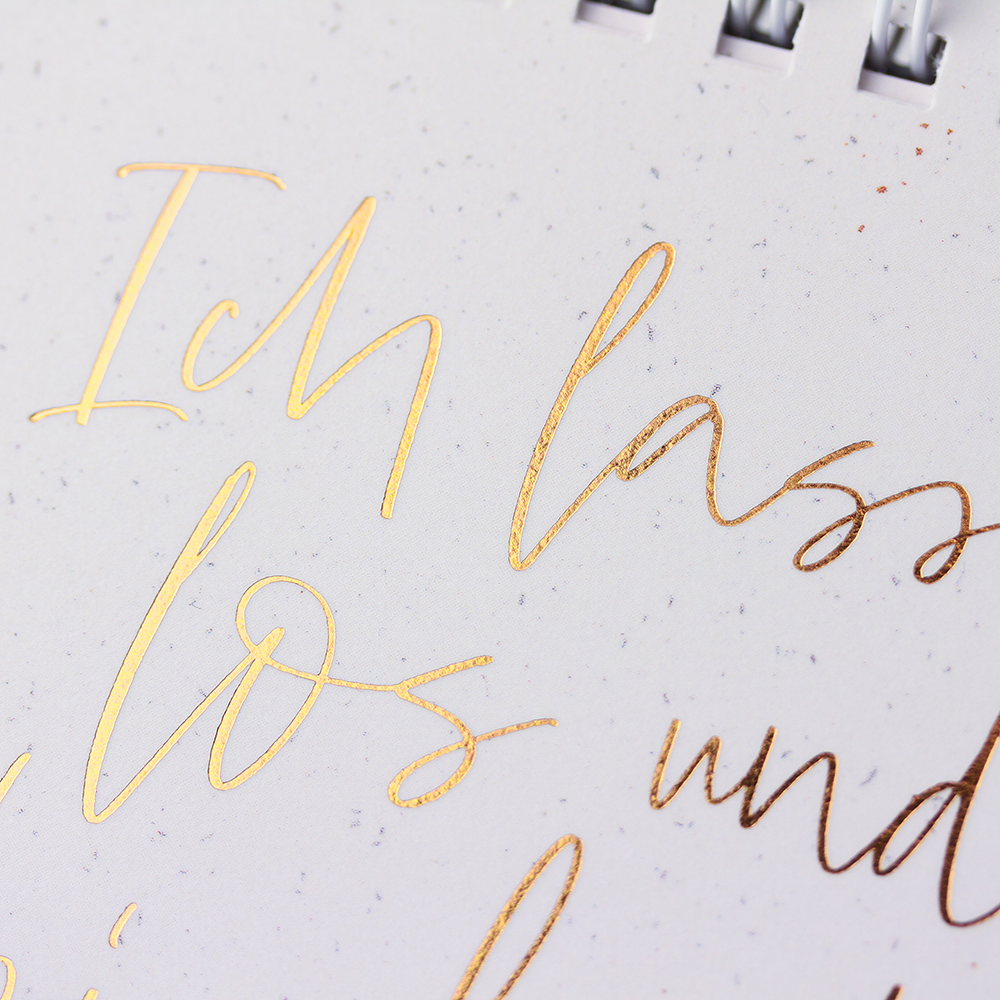 Ich lass
los und